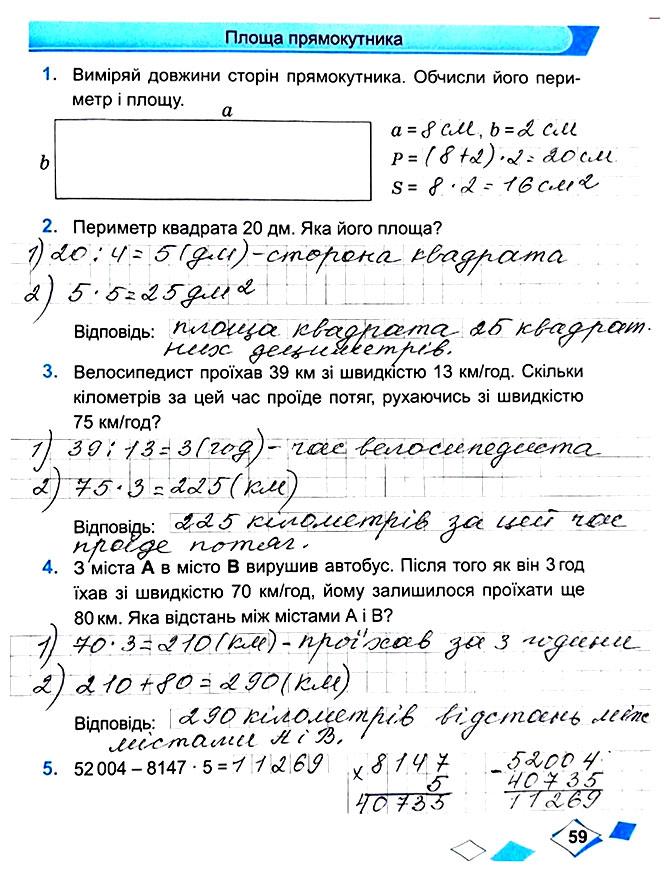 Площа прямокутника
1. Виміряй довжини сторін прямокутника. Обчисли його пери-
метр і площу.
a
b
a = 8 см, b = 2 см
P = (8+2)·2 = 20 см
S = 8 · 2 = 16 см2
2. Периметр квадрата 20 дм. Яка його площа?
1) 20 : 4 = 5 (дм) – сторона квадрата
2) 5 · 5 = 25 дм2
Відповідь: площа квадрата 25 квадрат-
них дециметрів.
3. Велосипедист проїхав 39 км зі швидкістю 13 км/год. Скільки
кілометрів за цей час проїде потяг, рухаючись зі швидкістю
75 км/год?
1) 39 : 13 = 3 (год) – час велосипедиста
2) 75 · 3 = 225 (км)
Відповідь: 225 кілометрів за цей час
проїде потяг.
4. З міста А в місто В вирушив автобус. Після того як він 3 год
їхав зі швидкістю 70 км/год, йому залишилося проїхати ще
80 км. Яка відстань між містами А і В?
1) 70 · 3 = 210 (км) – проїхав за 3 години
2) 210 + 80 = 290 (км)
Відповідь: 290 кілометрів відстань між
містами А і В.
5. 52 004 – 8147 · 5 = 11269
x 8147
5
40735
- 52004
40735
11269
59